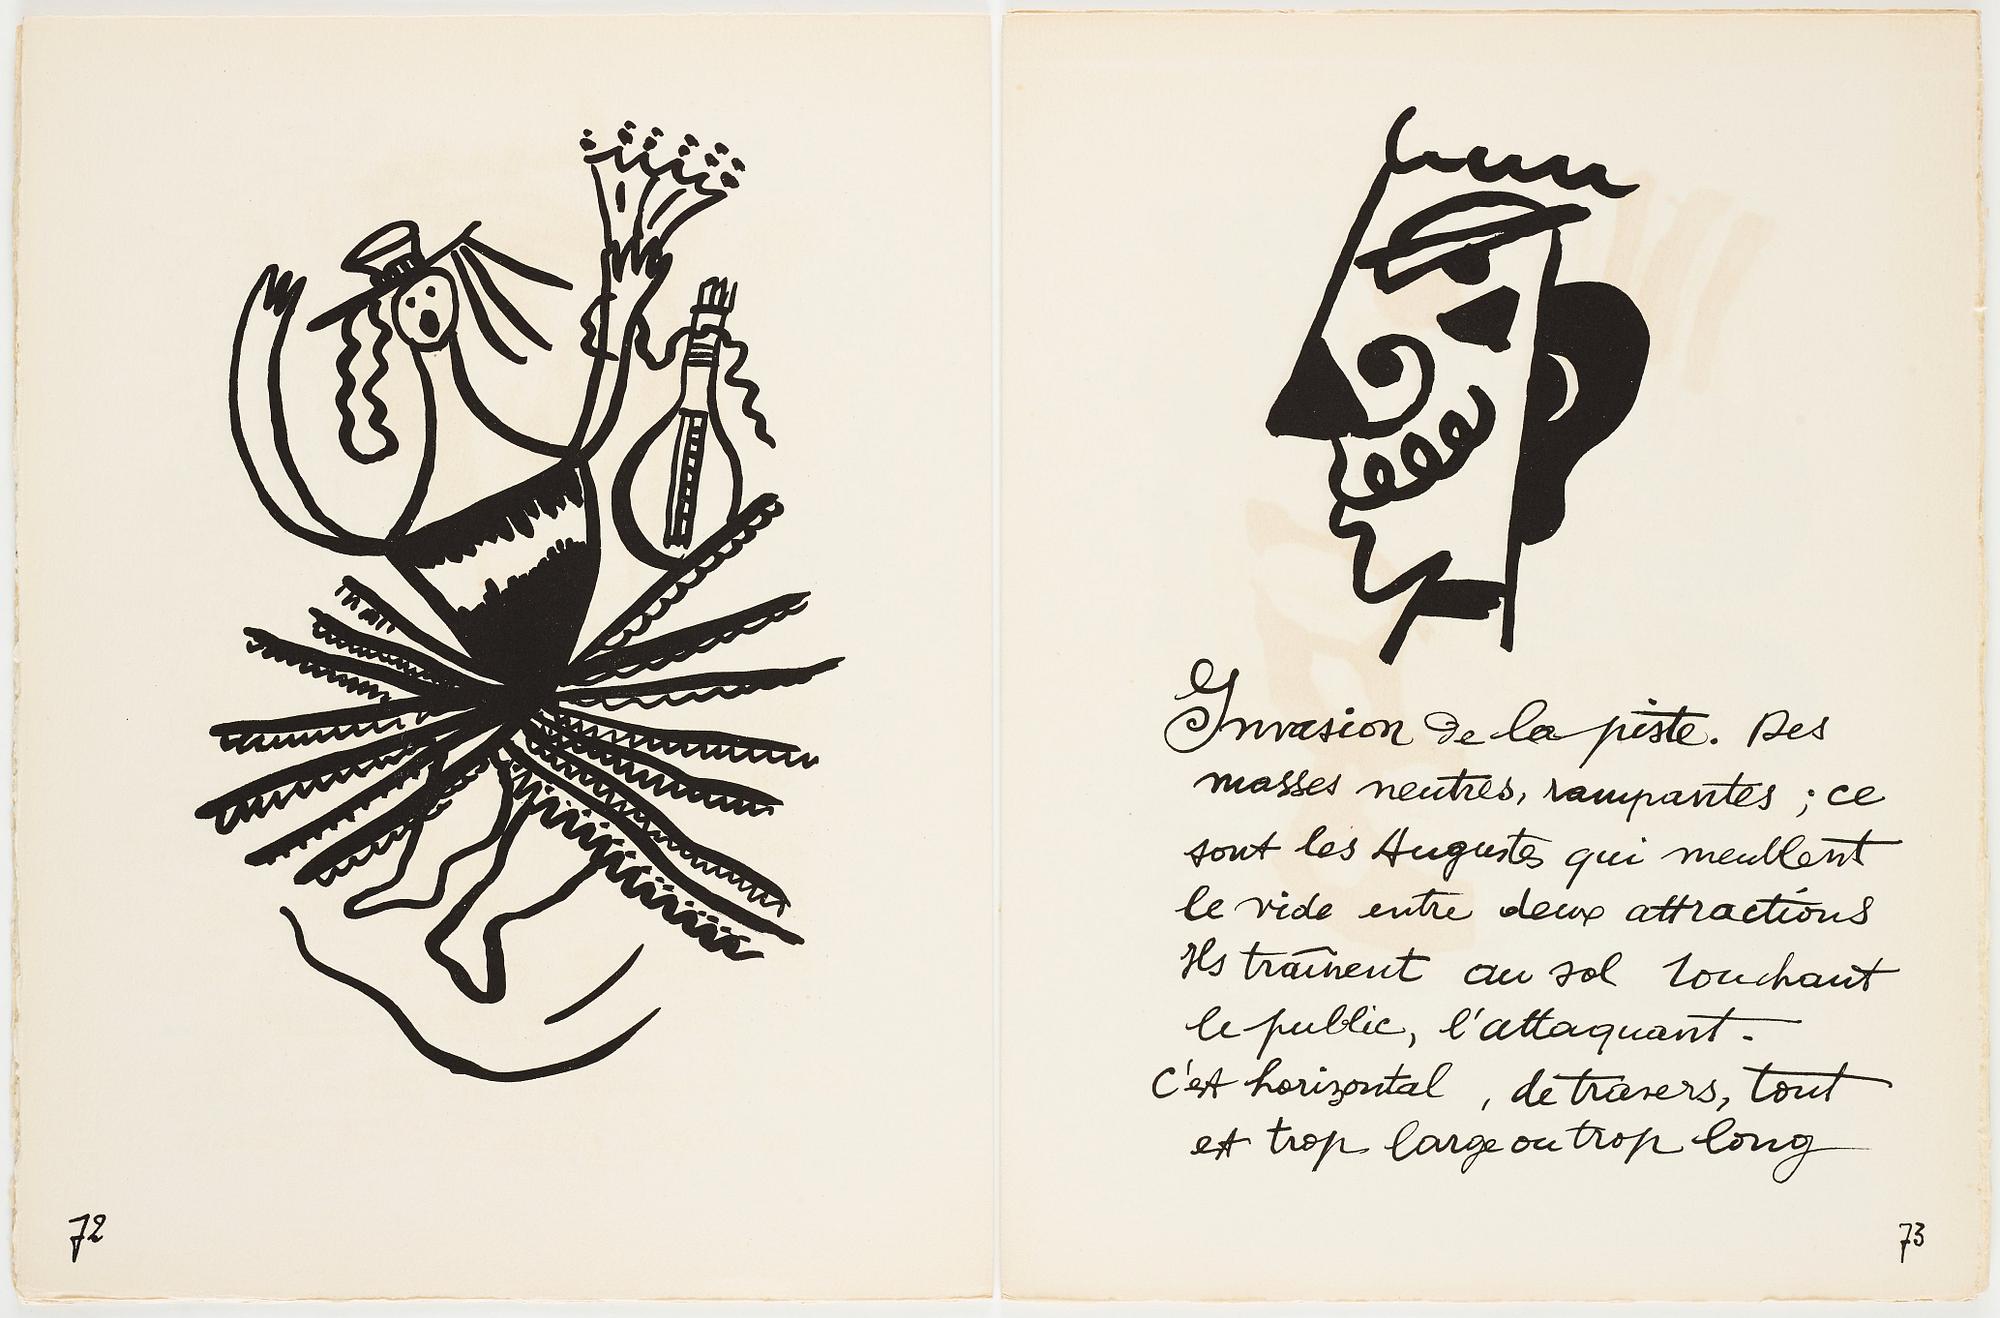 Invasion de la piste. Des
masses neutres, rampantes ; ce
sont les Augustes qui meublent
le vide entre deux attractions
Ils traînent au sol touchant
le public, l'attaquant.
c'est horizontal , de travers, tout
est trop large ou trop long
72
73